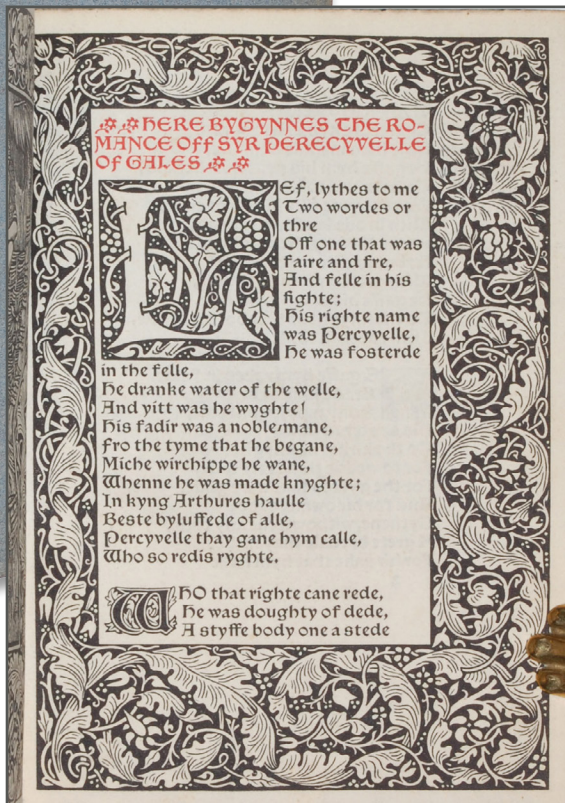 HERE BYGYNNES THE RO-
MANCE OFF SYR PERECYVELLE
OF GALES
LEf, lythes to me
Two wordes or
thre
Off one that was
faire and fre,
And felle in his
fighte;
His righte name
was Percyvelle,
He was fosterde
in the felle,
He dranke water of the welle,
And yitt was he wyghte!
His fadir was a noble mane,
Fro the tyme that he begane,
Miche wirchippe he wane,
Whenne he was made knyghte;
In kyng Arthures haulle
Beste byluffede of alle,
Percyvelle thay gane hym calle,
Who so redis ryghte.
WHO that righte cane rede,
He was doughty of dede,
A styffe body one a stede